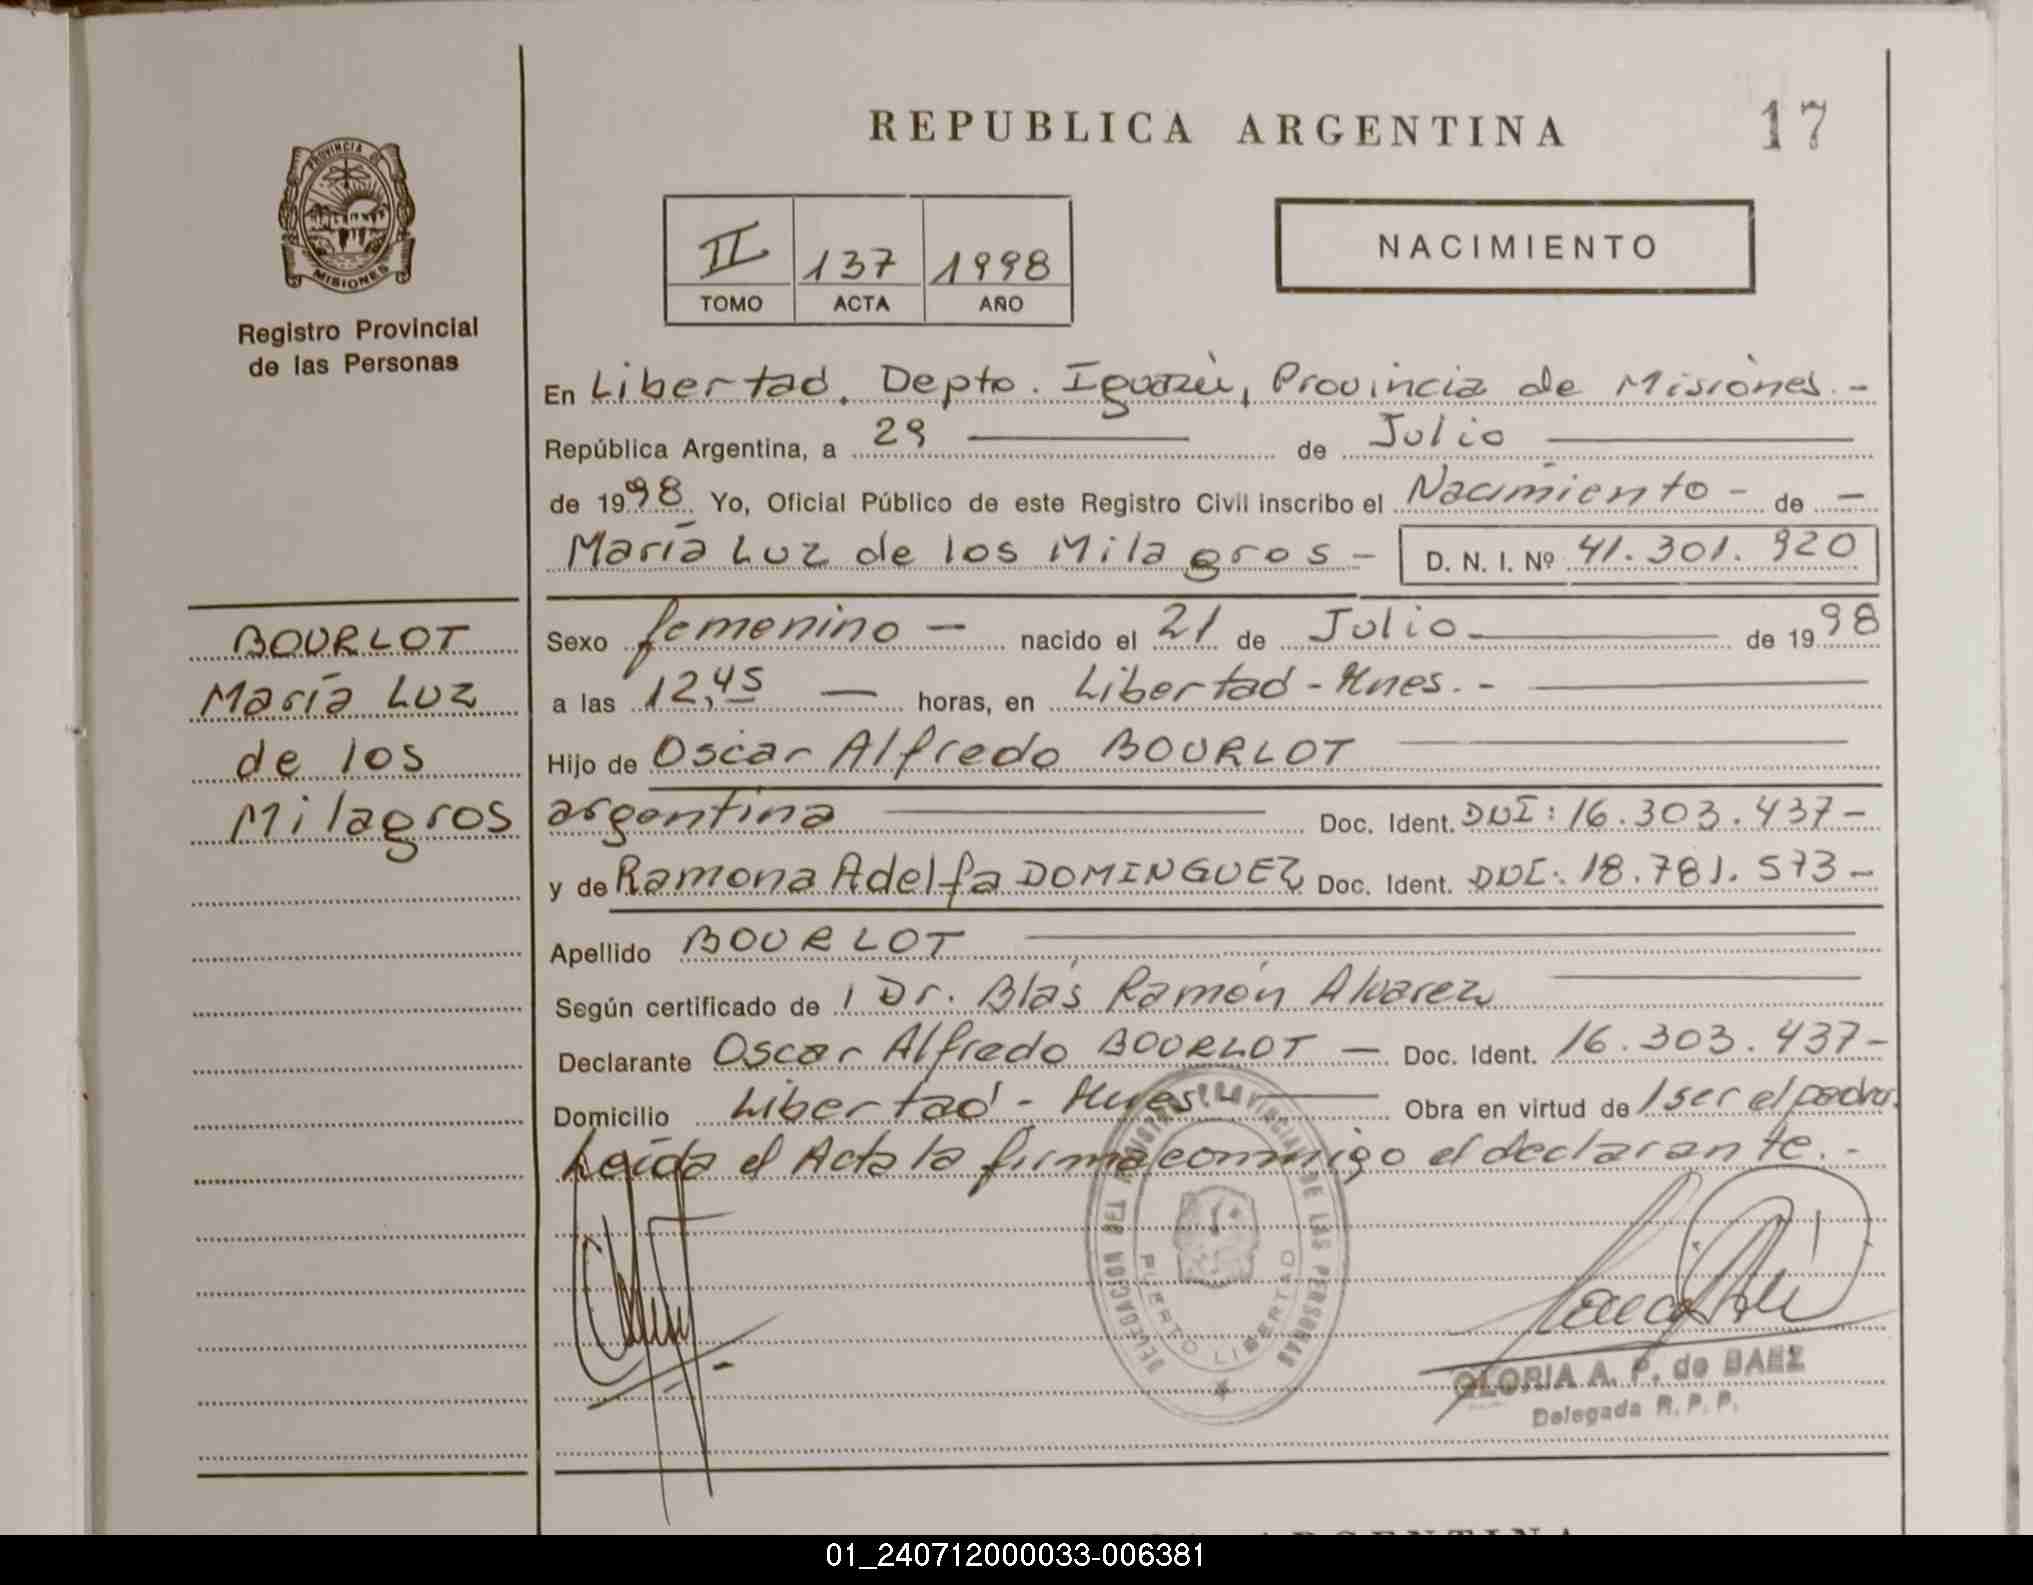 REPUBLICA ARGENTINA
17
PROVINCIA DE
MISIONES
Registro Provincial
de las Personas
II 137 1998
TOMO ACTA AÑO
NACIMIENTO
En Libertad. Depto. Iguazú, Provincia de Misiones.-
República Argentina, a 29 de Julio
de 1998 Yo, Oficial Público de este Registro Civil inscribo el Nacimiento - de -
María Luz de los Milagros - D. N. I. Nº 41.301.920
BOURLOT
María Luz
de los
Milagros
Sexo femenino - nacido el 21 de Julio de 1998
a las 12,45 - horas, en Libertad - Mnes. -
Hijo de Oscar Alfredo BOURLOT
argentina Doc. Ident. DNI: 16.303.437-
y de Ramona Adelfa DOMINGUEZ Doc. Ident. DNI: 18.781.573-
Apellido BOURLOT
Según certificado de / Dr. Blás Ramón Alvarez
Declarante Oscar Alfredo BOURLOT - Doc. Ident. 16.303.437-
Domicilio Libertad - Mnes Obra en virtud de / ser el padre.
Leída el Acta la firma conmigo el declarante.-
DELEGACION DEL REGISTRO PROVINCIAL DE LAS PERSONAS
PUERTO LIBERTAD
GLORIA A. P. de BAEZ
Delegada R. P. P.
ARGENTINA
01_240712000033-006381